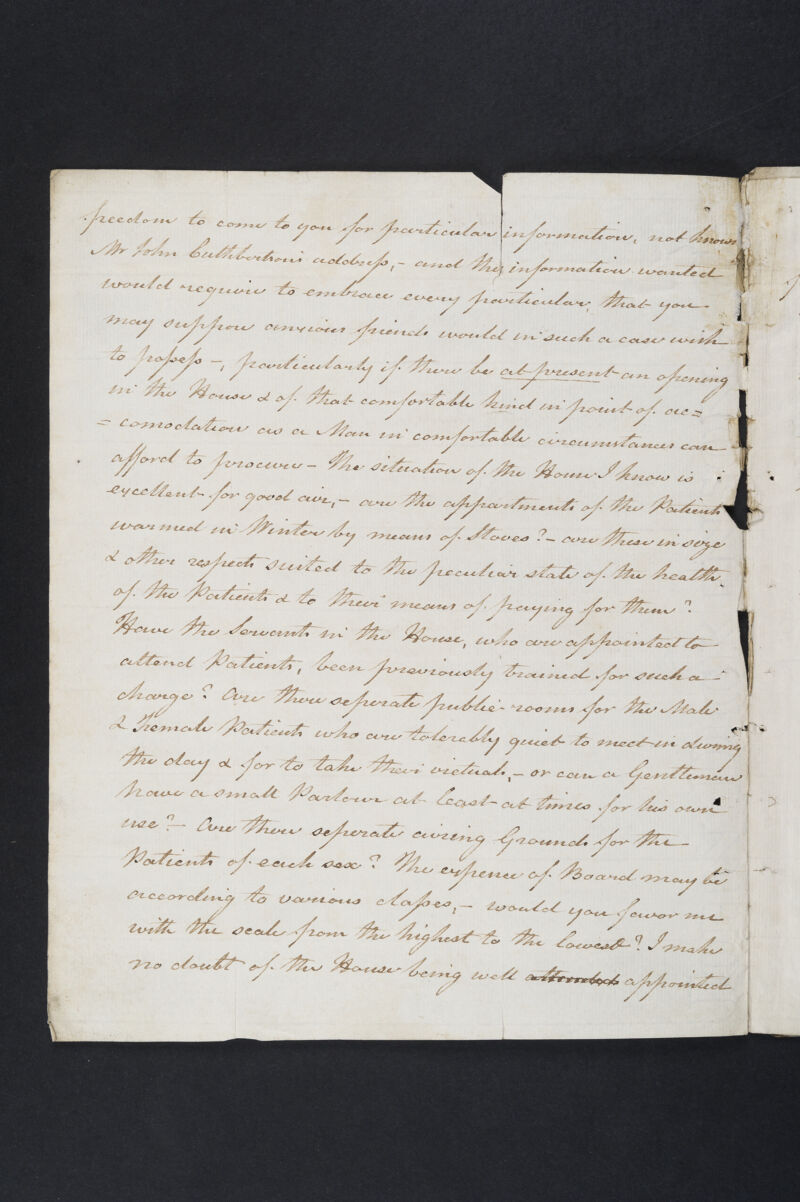 freedom to come to you for particular information, not know
Mr John Cuthbertson's address, – and the information wanted
would require to embrace every particular, that you
may suppose anxious friends would in such a case wish
to possess –, particularly if there be at present an opening
in the House & of that comfortable kind in point of ac=
=comodation as a Man in comfortable circumstances can
afford to procure – The situation of the House I know is
excellent for good air, – are the appartments of the Patients
warmed in Winter by means of Stoves? – are these in size
& other respects suited to the peculiar state of the health
of the Patients & to their means of paying for them?
Have the Servants in the House, who are appointed to
attend Patients, been previously trained for such a
charge? Are there seperate public-rooms for the Male
& Female Patients who are tolerably quiet to meet in during
the day & for to take their victuals, – or can a Gentleman
have a small Parlour at least at times for his own
use? – Are there seperate airing Grounds for the
Patients of each sex? The expence of Board may be
according to various classes, – would you favor me
with the scale from the highest to the lowest? I make
no doubt of the House being well attended appointed